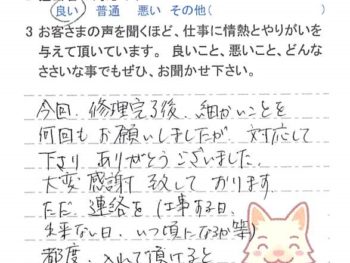 良い 普通 悪い その他(　　　)
3 お客さまの声を聞くほど、仕事に情熱とやりがいを
与えて頂いています。 良いこと、悪いこと、どんな
ささいな事でもぜひ、お聞かせ下さい。
今回、修理完了後、細かいことを
何回もお願いしましたが、対応して
下さり ありがとうございました。
大変感謝致しております。
ただ、連絡を(仕事ある日、
出来ない日、いつ頃になるか等)
都度、入れて頂けると